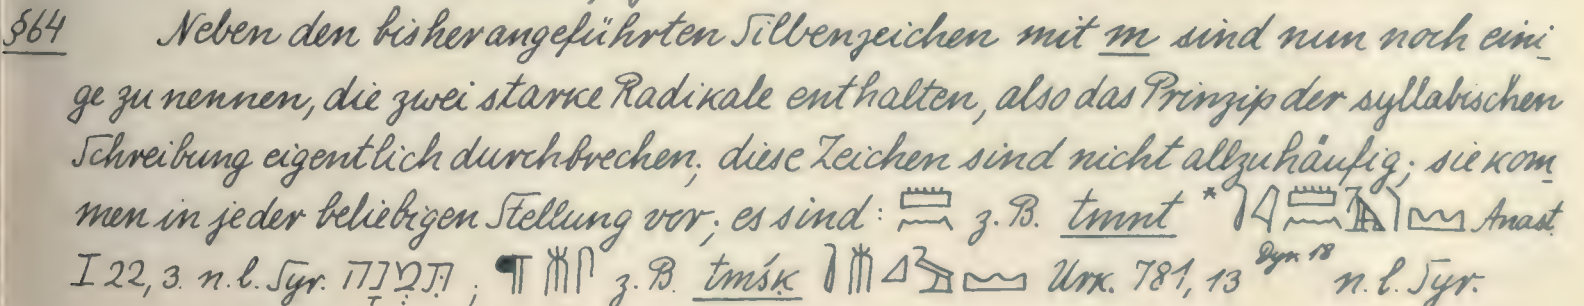 §64 Neben den bisher angeführten Silbenzeichen mit m sind nun noch eini
ge zu nennen, die zwei starke Radikale enthalten, also das Prinzip der syllabischen
Schreibung eigentlich durchbrechen; diese Zeichen sind nicht allzu häufig; sie kom
men in jeder beliebigen Stellung vor; es sind: z.B. tmnt * Anast.
I 22, 3. n.l. Syr. ; ¶ z.B. tmśk Urk. 781, 13 Dyn 18 n.l. Syr.